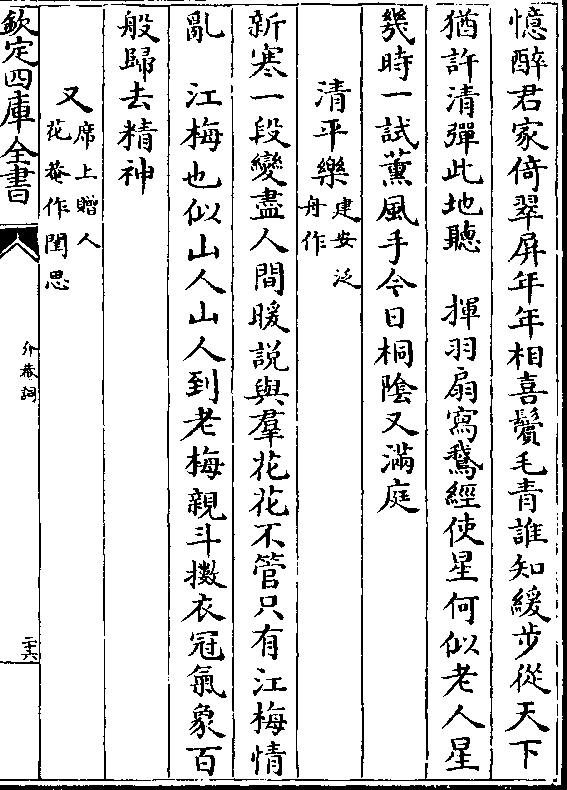 憶醉君家倚翠屏年年相喜鬢毛青誰知緩步從天下
猶許清彈此地聽　揮羽扇寫鵞經使星何似老人星
幾時一試薫風手今日桐陰又滿庭
清平樂建安泛舟作
新寒一段變盡人間暖説與羣花花不管只有江梅情
亂　江梅也似山人山人到老梅親斗擻衣冠氣象百
般歸去精神
又席上贈人花菴作閨思
欽定四庫全書
介菴詞
二十六